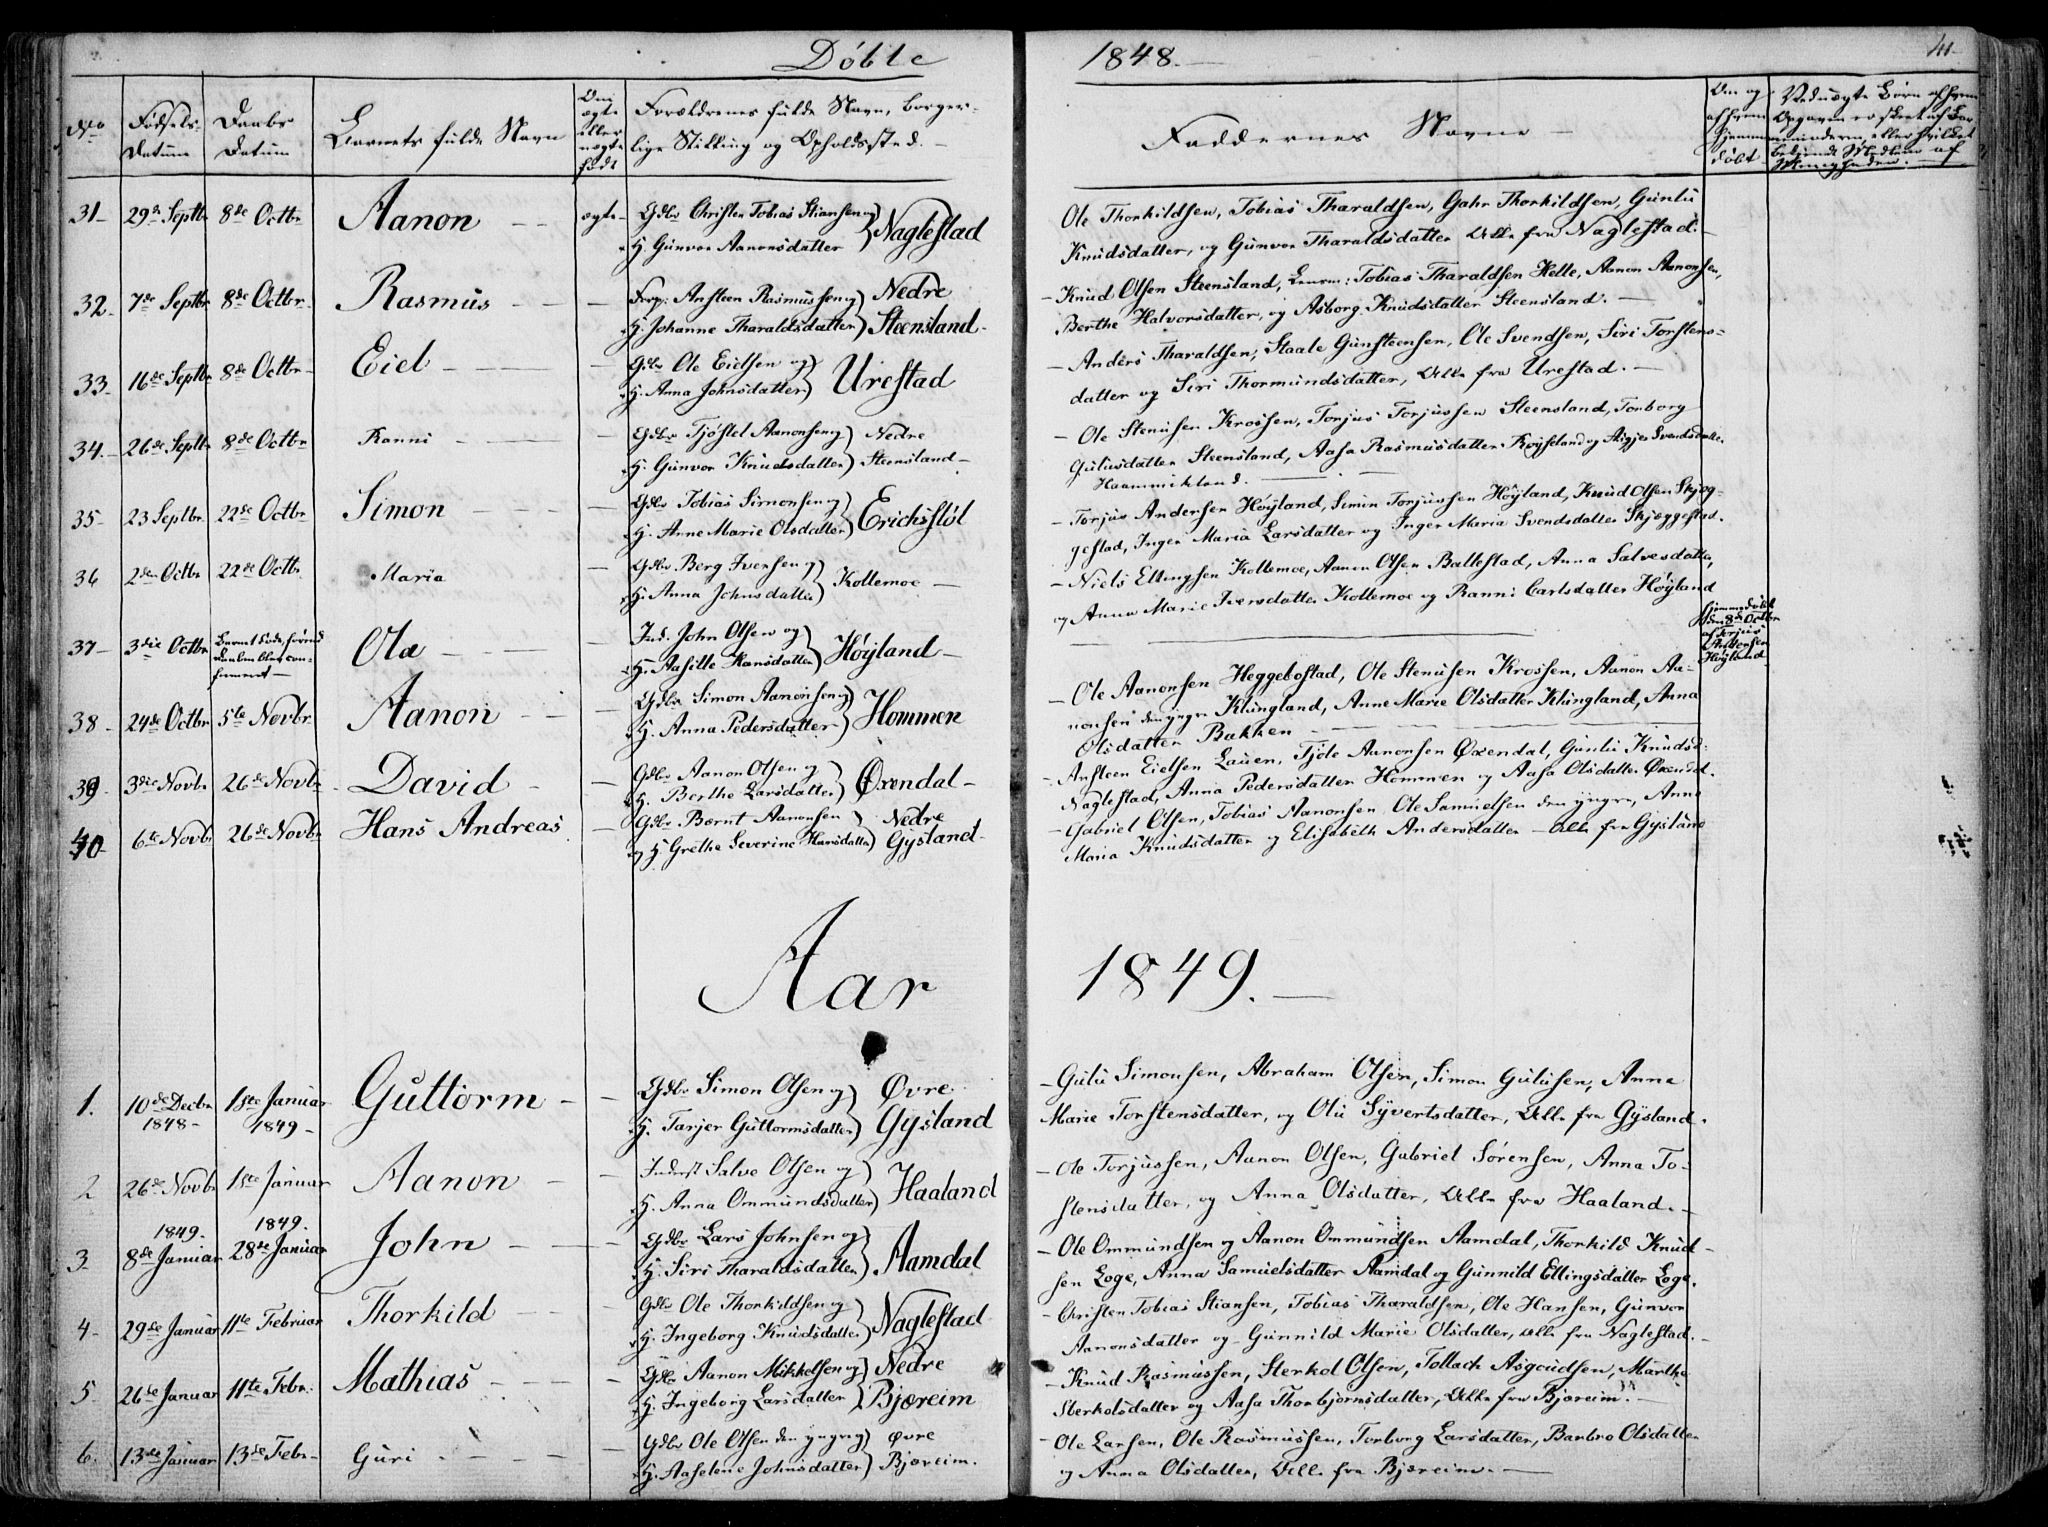 Døbte 1848. 41
No
Fødsels-
Datum
Daabs
Datum
Barnets fulde Navn
Om
ægte
eller
uægte
født
Forældrenes fulde Navn, borger-
lige Stilling og Opholdssted.
Faddernes Navne
Om og
af hvem
hjemme
døbt
31 29de Septbr 8de Octbr Aanon ægte Gdbr Christen Tobias Stiansen og
H. Gunvor Aanonsdatter Naglestad
Ole Thorkildsen, Tobias Tharaldsen, Gahr Thorkildsen, Gunlu
Knudsdatter, og Gunvor Tharaldsdatter Alle fra Naglestad.
32. 7de Septbr 8de Octbr. Rasmus Ansteen Rasmussen og Nedre
H. Johanne Tharaldsdatter Steensland
Knud Olsen Steensland, Tobias Tharaldsen Helle, Aanon Aanonsen,
Berthe Halvorsdatter, og Asborg Knudsdatter Steensland.
33. 16de Septbr 8de Octbr Eiel Gdbr Ole Eielsen og
H. Anna Johnsdatter Urestad
Anders Tharaldsen, Staale Gunsteensen, Ole Svendsen, Siri Torstens-
datter og Siri Thormundsdatter, Alle fra Urestad.
34. 26de Septbr 8de Octbr Ranni Gdbr Tjøstel Aanonsen og Nedre
H. Gunvor Knudsdatter Steensland
Ole Stenusen Krossen, Torjus Torjussen Steensland, Torborg
Gulusdatter Steensland, Aasa Rasmusdatter Røyseland og Svendsdatter
35 23 Septbr 22de Octbr Simon Gdbr Tobias Simonsen og
H. Anne Marie Olsdatter Erichsstøl
Torjus Andersen Høyland, Simon Torjussen Høyland, Knud Olsen Skjæg-
gestad, Inger Maria Larsdatter og Inger Maria Svendsdatter Skjæggestad.
36 2den Octbr 22de Octbr. Maria Gdbr Berg Iversen og
H. Anna Johnsdatter Kollemoe
Niels Ellingsen Kollemoe, Aanon Olsen Ballestad, Anna Salvesdatter,
og Anna Marie Iversdatter Kollemoe og Ranni Carlsdatter Høyland
37 3die Octbr Barnet døde, førend
Daaben blev con-
firmeret Ola Ind. John Olsen og
H. Aasille Hansdatter Høyland
Hjemmedøbt
den 8de Octbr
af Torjus
Andersen
Høyland
38 24de Octbr 5te Novbr Aanon Gdbr Simon Aanonsen og
H. Anna Pedersdatter Hommen
Ole Aanonsen Heggebostad, Ole Stenusen Krossen, Aanon Aa-
nonsen den yngre Klungland, Anne Marie Olsdatter Klungland, Anna
Olsdatter Bakken
39 3die Novbr 26de Novbr David Gdbr Aanon Olsen og
H. Berthe Larsdatter Øxendal
Ansteen Eielsen Lauen, Tjøle Aanonsen Øxendal, Gunlu Knudsd:
Naglestad, Anna Pedersdatter Hommen og Aasa Olsdatter Øxendal.
40 6te Novbr 26de Novbr Hans Andreas Gdbr Bærnt Aanonsen Nedre
og H. Grethe Severine Hansdatter Gysland
Gabriel Olsen, Tobias Aanonsen, Ole Samuelsen den yngre, Anne
Maria Knudsdatter og Elisabeth Andersdatter Alle fra Gysland
Aar 1849.
1. 10de Decbr
1848 1ste Januar
1849 Guttorm Gdbr Simon Olsen og Øvre
H. Tarjer Guttormsdatter Gysland
Gulu Simonsen, Abraham Olsen, Simon Gulusen, Anne
Marie Torstensdatter, og Olu Syvertsdatter, Alle fra Gysland.
2 26de Novbr 1ste Januar Aanon Inderst Salve Olsen og
H. Anna Ommundsdatter Haaland
Ole Torjussen, Aanon Olsen, Gabriel Sørensen, Anna To-
stensdatter, og Anna Olsdatter, Alle fra Haaland.
1849. 1849.
3 8de Januar 28de Januar John Gdbr Lars Johnsen og
H. Siri Tharaldsdatter Aamdal
Ole Ommundsen og Aanon Ommundsen Aamdal, Thorkild Knud-
sen Loge, Anna Samuelsdatter Aamdal og Gunnild Ellingsdatter Loge.
4 29de Januar 11te Februar Thorkild Gdbr Ole Thorkildsen og
H. Ingeborg Knudsdatter Naglestad
Christen Tobias Stiansen, Tobias Tharaldsen, Ole Hansen, Gunvor
Aanonsdatter og Gunnild Marie Olsdatter, Alle fra Naglestad.
5 26de Januar 11te Febr: Mathias Gdbr Aanon Mikkelsen og Nedre
H. Ingeborg Larsdatter Bjæreim
Knud Rasmussen, Sterkol Olsen, Tollach Asgoudsen, Marthe
Sterkolsdatter og Aasa Thorbjørnsdatter, Alle fra Bjæreim.
6. 13de Januar 13de Febr Guri Gdbr Ole Olsen den yngre og Øvre
H. Aaselene Johnsdatter Bjæreim.
Ole Larsen, Ole Rasmussen, Torborg Larsdatter, Barbro Olsdatter
og Anna Olsdatter, Alle fra Bjæreim.